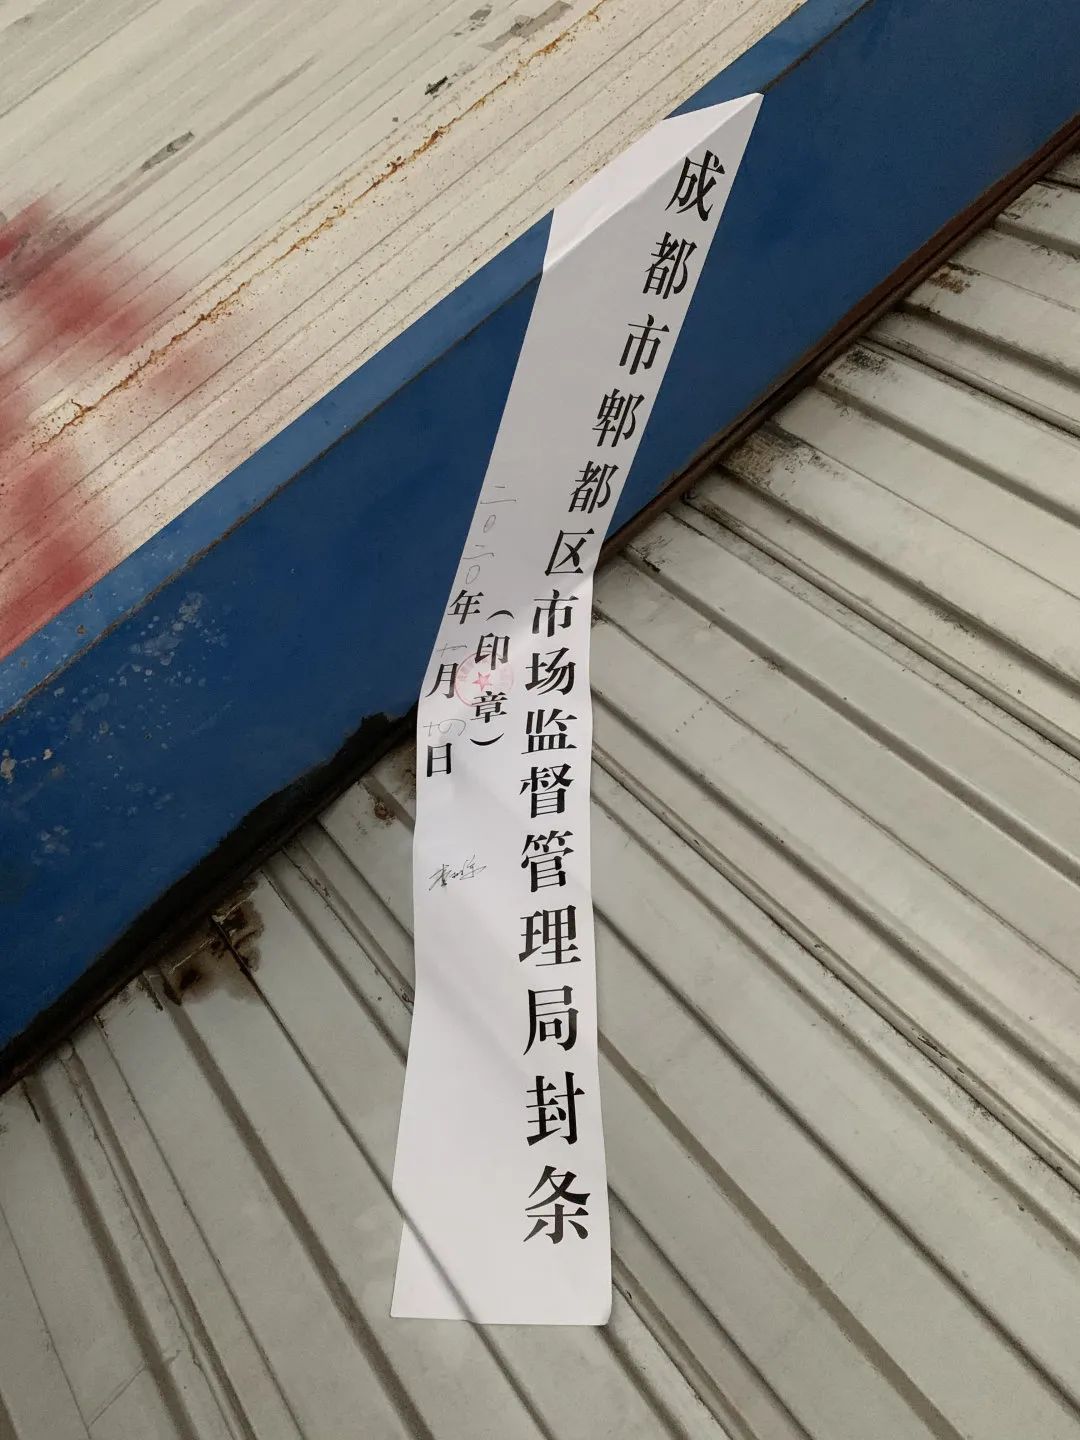 成都市郫都区市场监督管理局封条
(印章)
二0二0年十月十四日